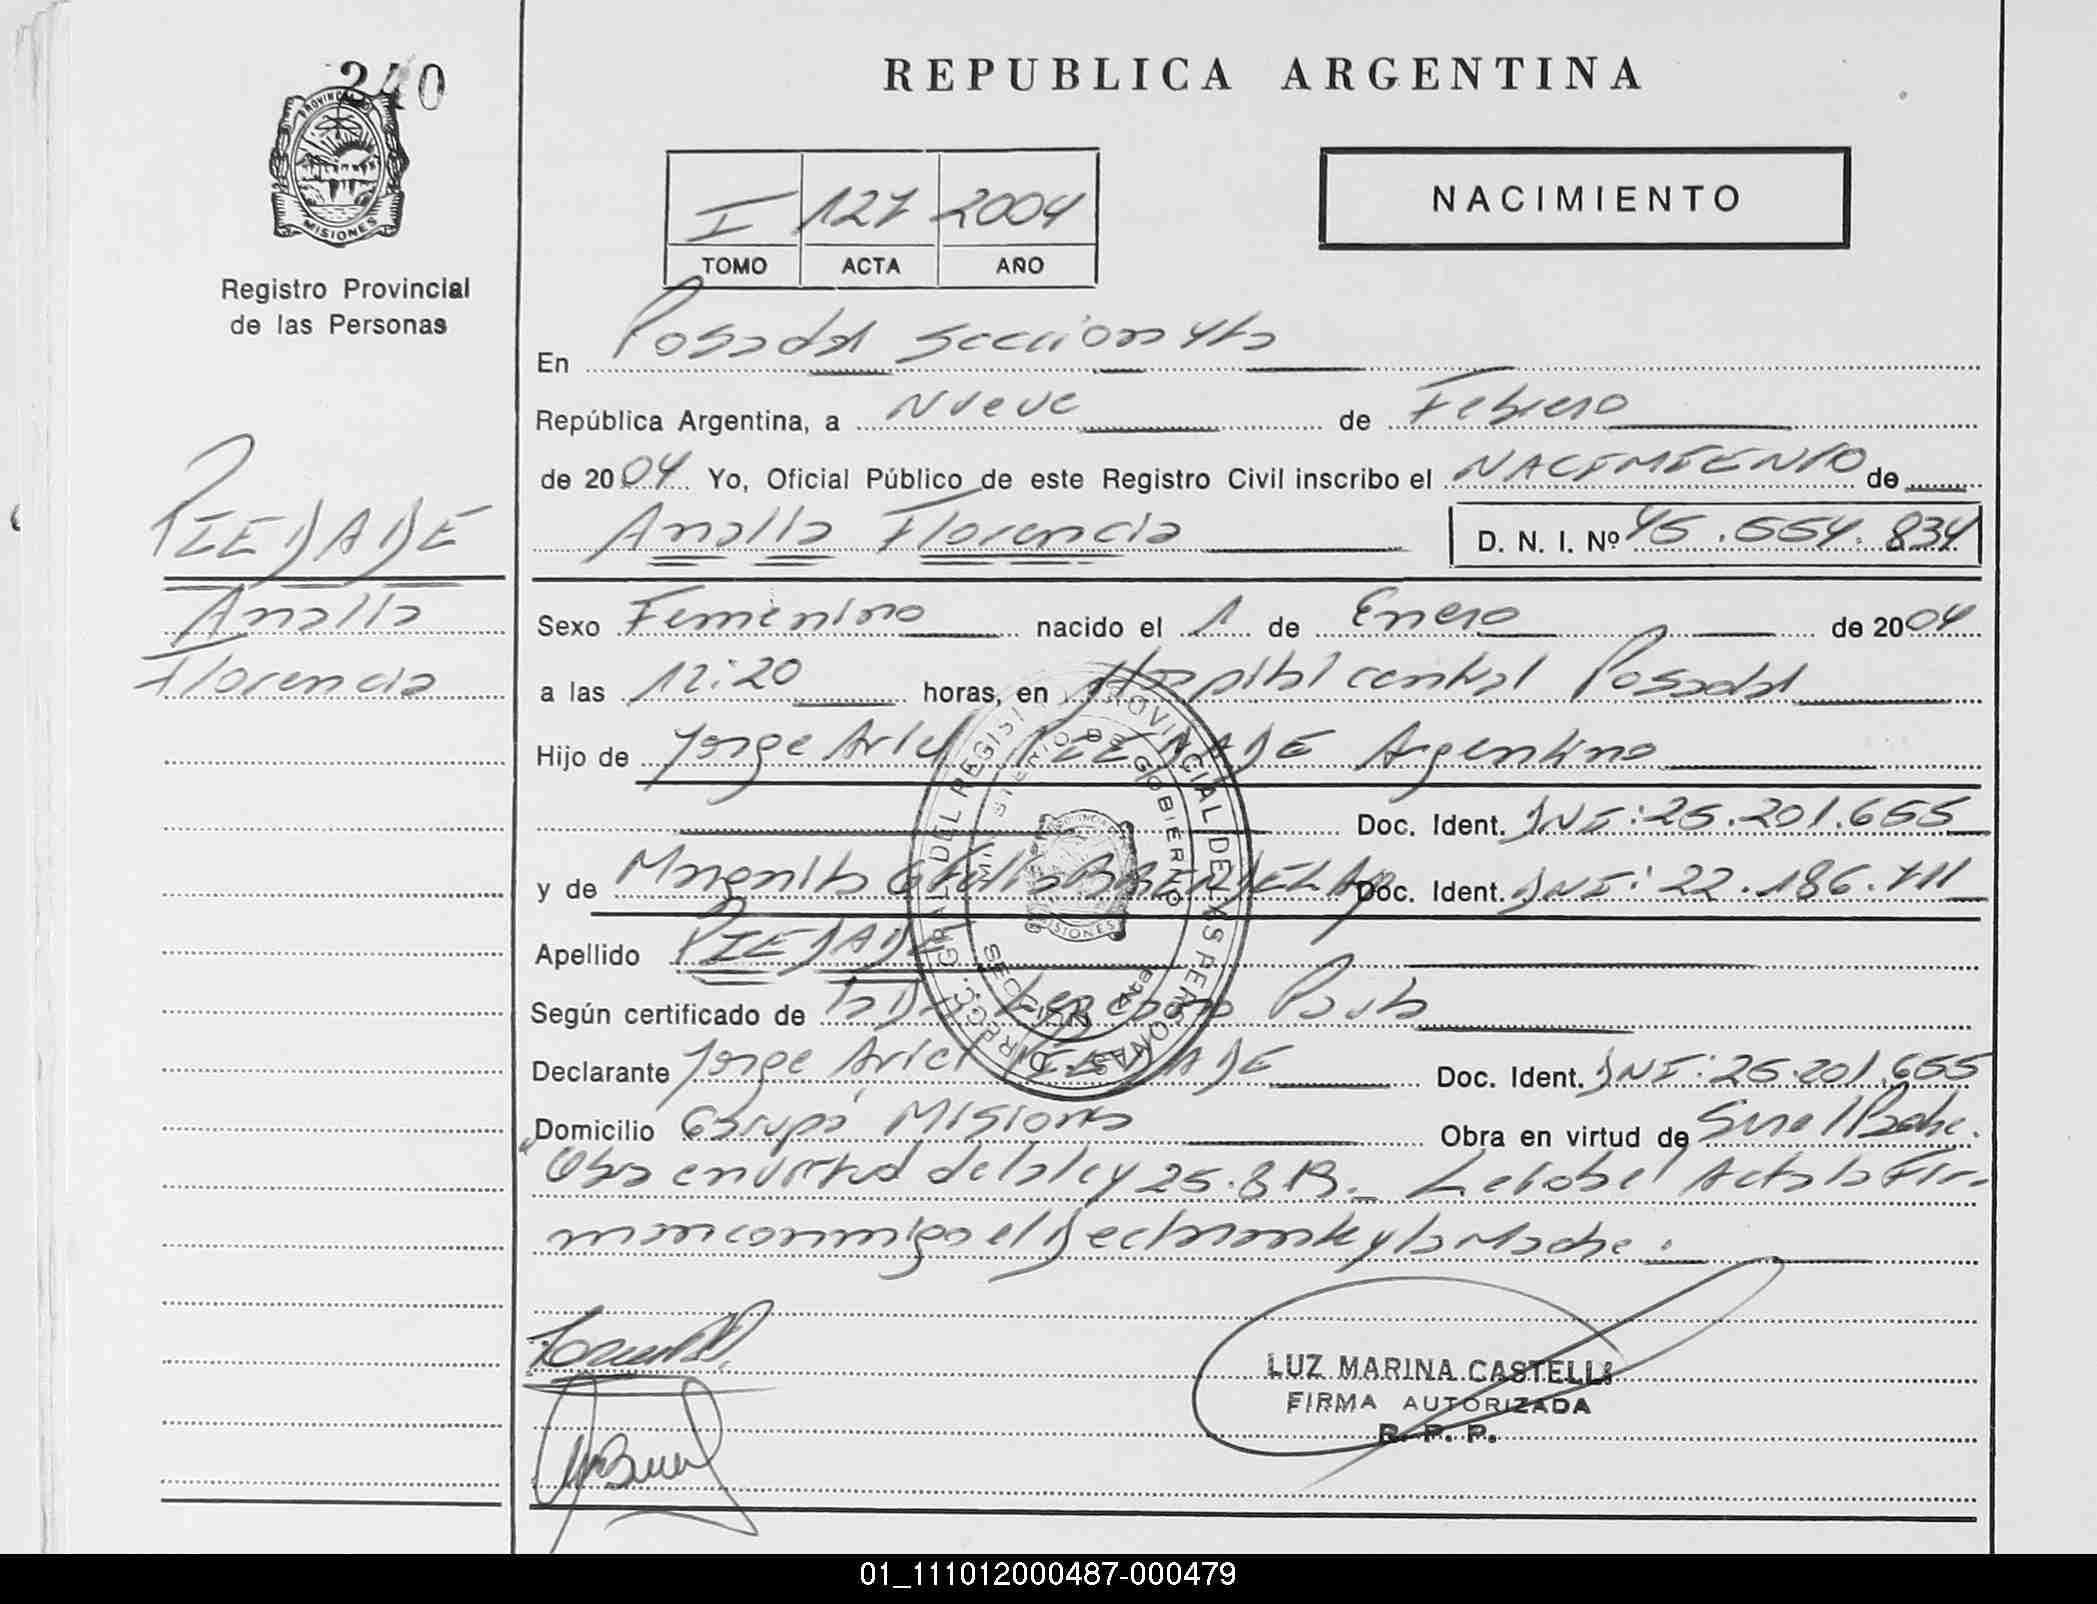 240
PROVINCIA DE
MISIONES
Registro Provincial
de las Personas
REPUBLICA ARGENTINA
I 127 2004
TOMO ACTA AÑO
NACIMIENTO
En Posadas Seccion 4ta
República Argentina, a Nueve de Febrero
de 2004 Yo, Oficial Público de este Registro Civil inscribo el NACIMIENTO de
Analia Florencia D. N. I. Nº 45.554.834
PIEDADE
Analia
Florencia
Sexo Femenino nacido el 1 de Enero de 2004
a las 12:20 horas, en Hospital central Posadas
Hijo de Jorge Ariel PIEDADE Argentino
Doc. Ident. DNI: 25.201.655
y de Margarita Doc. Ident. DNI: 22.186.711
Apellido PIEDADE
Según certificado de
Declarante Jorge Ariel PIEDADE Doc. Ident. DNI: 25.201.655
Domicilio Garupá Misiones Obra en virtud de
Obra en virtud de la ley 25.819. Leida el Acta la Fir-
man conmigo el Declarante y la Madre.
DIRECC. GRAL DEL REGISTRO PROVINCIAL DE LAS PERSONAS
MINISTERIO DE GOBIERNO
SECCION 4ta
MISIONES
LUZ MARINA CASTELLI
FIRMA AUTORIZADA
R. P. P.
01_111012000487-000479